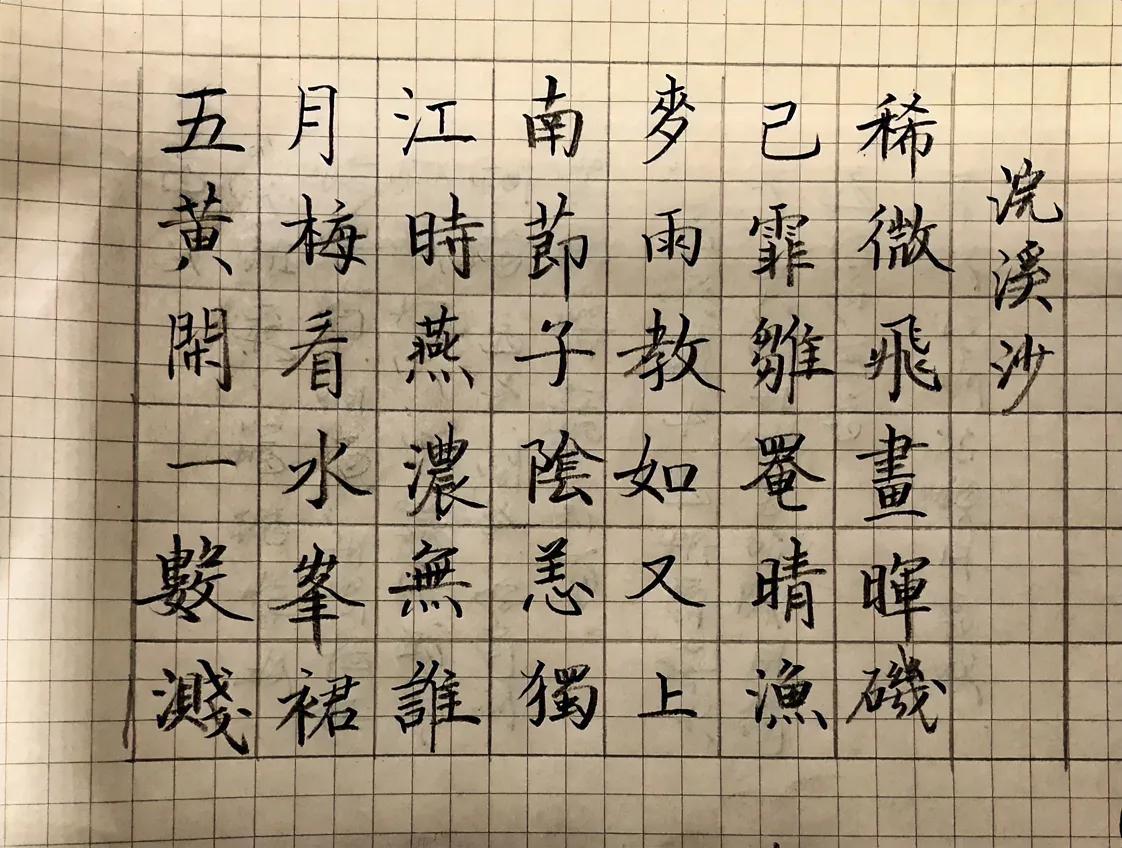 浣溪沙
五月江南麥已稀
黄梅時節雨霏微
閑看燕子教雛飛
一水濃陰如罨畫
數峯無恙又晴暉
濺裙誰獨上漁磯